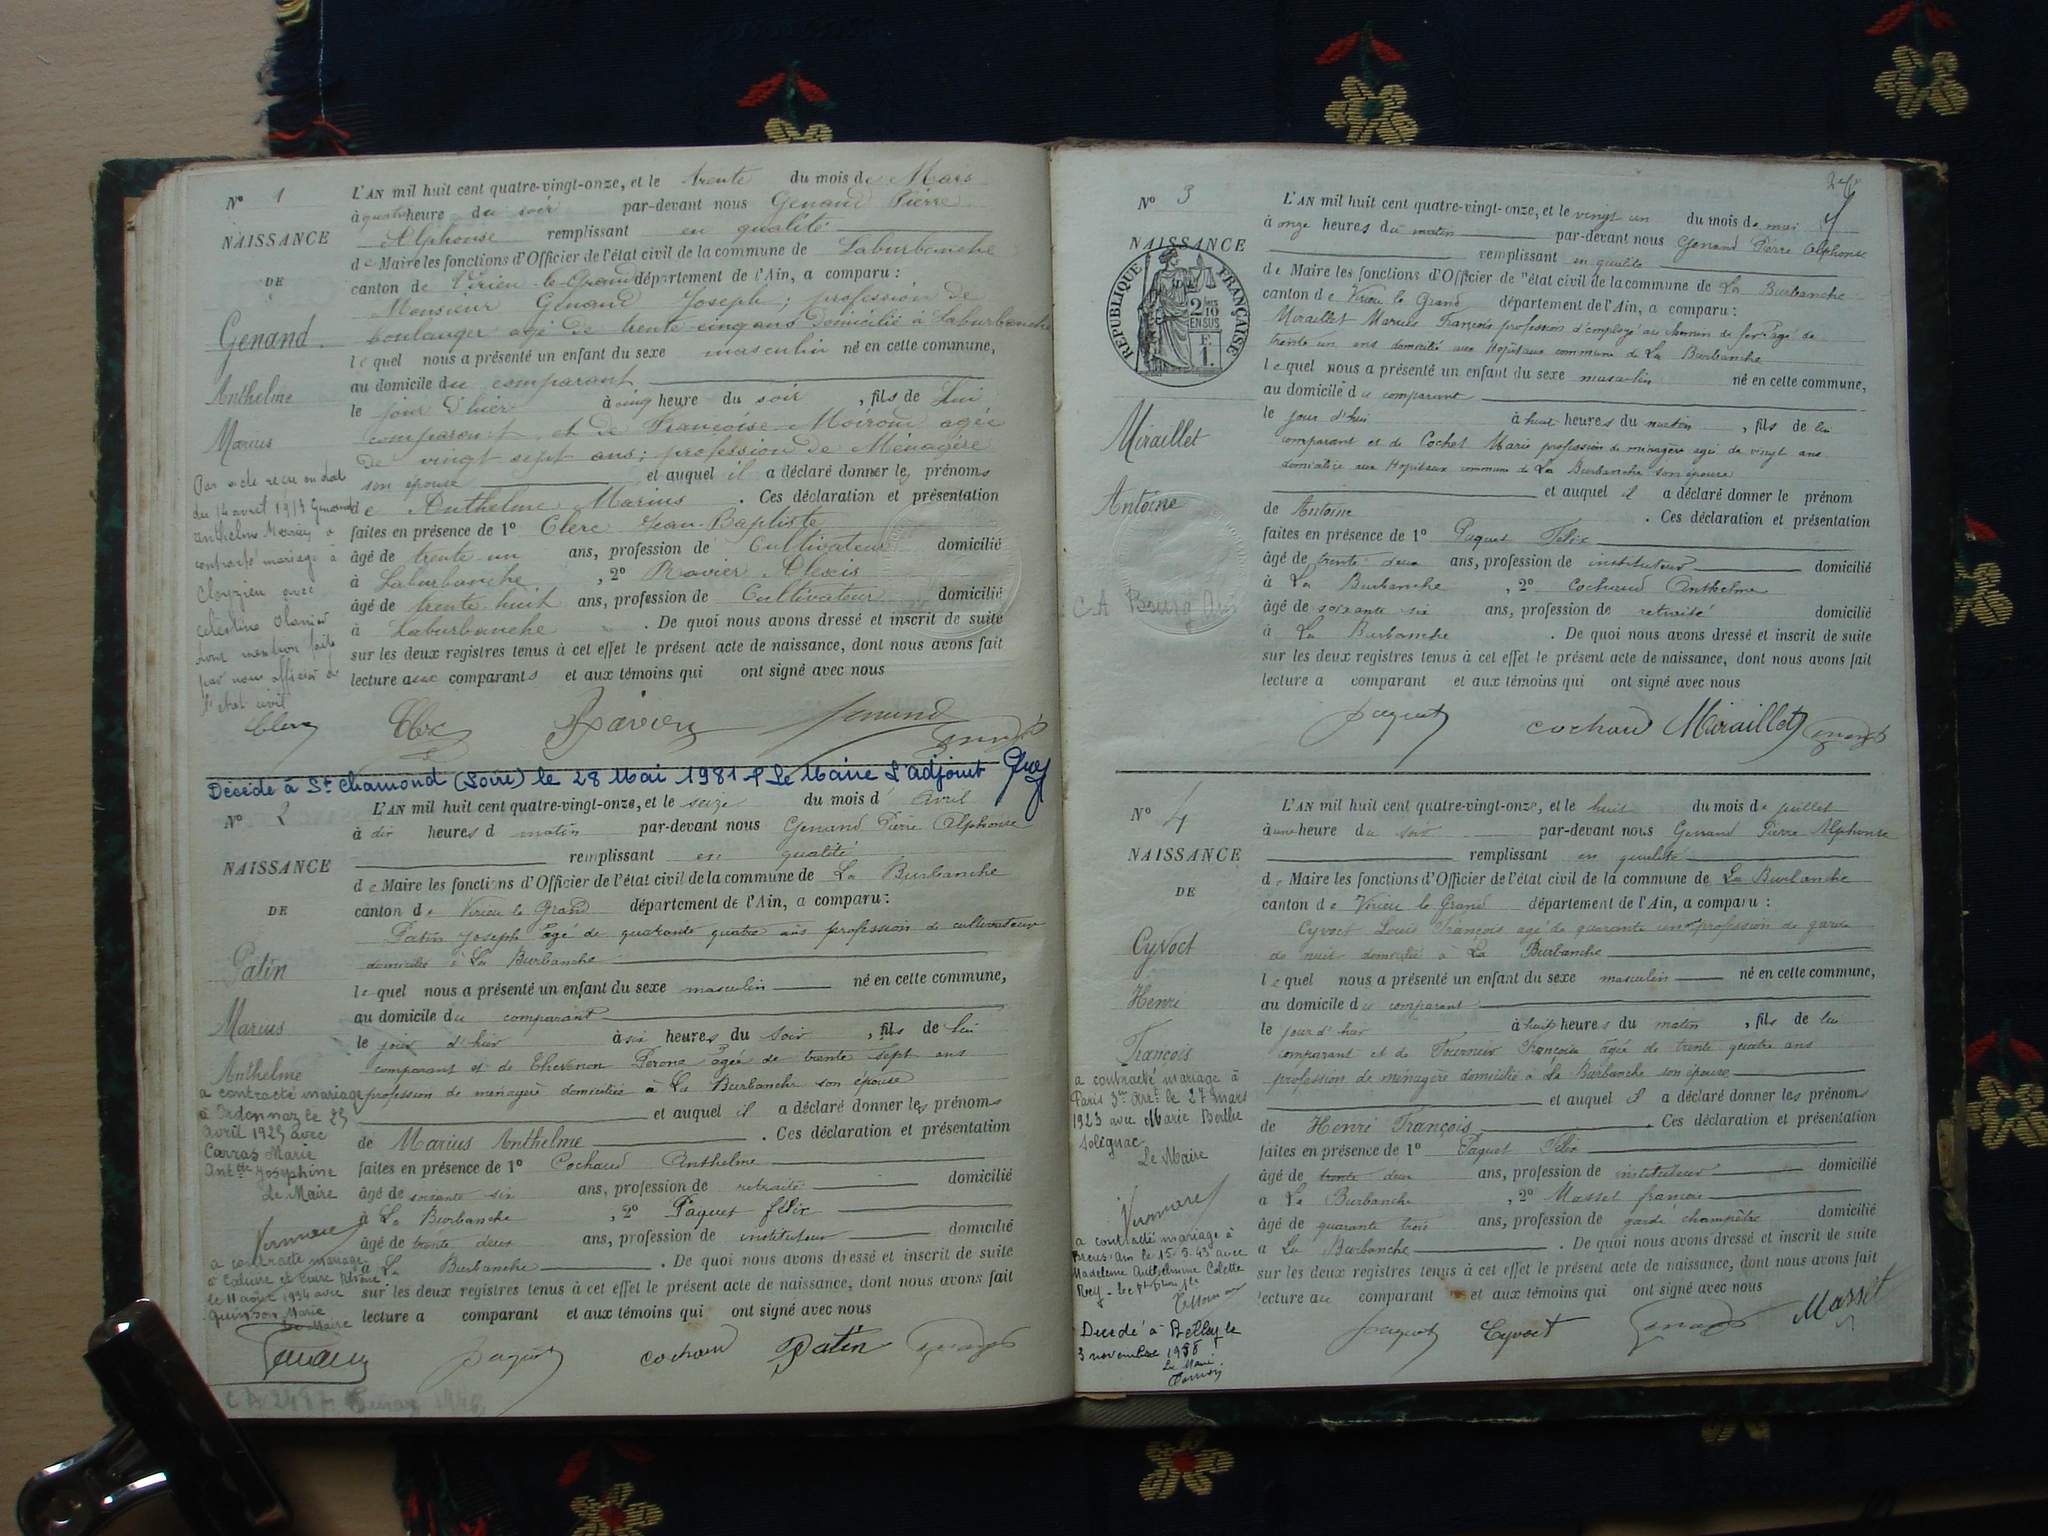 N° 1
NAISSANCE
DE
Genand
Anthelme
Marius
L'AN mil huit cent quatre-vingt-onze, et le trente du mois de Mars
à quatre heure du soir par-devant nous Genand Pierre
Alphonse remplissant en qualité
de Maire les fonctions d'Officier de l'état civil de la commune de Laburbanche
canton de Virieu-le-Grand département de l'Ain, a comparu :
Monsieur Genand Joseph ; profession de
boulanger agé de trente-cinq ans domicilié à Laburbanche
lequel nous a présenté un enfant du sexe masculin né en cette commune,
au domicile du comparant
le jour d'hier à cinq heure du soir , fils de Lui
comparent et de Françoise Moiroud agée
de vingt sept ans ; profession de Ménagère
son épouse et auquel il a déclaré donner les prénoms
de Anthelme Marius . Ces déclaration et présentation
faites en présence de 1° Clerc Jean-Baptiste
âgé de trente un ans, profession de Cultivateur domicilié
à Laburbanche , 2° Ravier Alexis
âgé de trente huit ans, profession de Cultivateur domicilié
à Laburbanche . De quoi nous avons dressé et inscrit de suite
sur les deux registres tenus à cet effet le présent acte de naissance, dont nous avons fait
lecture aux comparants et aux témoins qui ont signé avec nous
du 14 avril 1919 Genand
Anthelme Marius a
contracté mariage à
Cleyzieu avec
dont mention faite
par nous officier de
l'état civil
Clerc Ravier Genand
Décédé à St Chamond (Loire) le 28 Mai 1981 Le Maire L'adjoint
N° 2
NAISSANCE
DE
Patin
Marius
Anthelme
L'AN mil huit cent quatre-vingt-onze, et le seize du mois d' Avril
à dix heures d matin par-devant nous Genand Pierre Alphonse
remplissant en qualité
de Maire les fonctions d'Officier de l'état civil de la commune de La Burbanche
canton de Virieu le Grand département de l'Ain, a comparu :
Patin Joseph agé de quarante quatre ans profession de cultivateur
domicilié à La Burbanche
lequel nous a présenté un enfant du sexe masculin né en cette commune,
au domicile du comparant
le jour d'hier à six heures du soir , fils de lui
comparant et de Thevenon Perone agée de trente sept ans
profession de ménagère domiciliée à La Burbanche son épouse
et auquel il a déclaré donner les prénoms
de Marius Anthelme . Ces déclaration et présentation
faites en présence de 1° Cochaud Anthelme
âgé de soixante six ans, profession de retraité domicilié
à La Burbanche , 2° Paquet félix
âgé de trente deux ans, profession de instituteur domicilié
à La Burbanche . De quoi nous avons dressé et inscrit de suite
sur les deux registres tenus à cet effet le présent acte de naissance, dont nous avons fait
lecture a comparant et aux témoins qui ont signé avec nous
a contracté mariage
à Ordonnaz le 25
avril 1925 avec
Carras Marie
Antte Josephine
Le Maire
a contracté mariage
le 11 août 1934 avec
Quinson Marie
Le Maire
Paquet Cochaud Patin Genand
N° 3
NAISSANCE
RÉPUBLIQUE FRANÇAISE
2/10 EN SUS
F. 1.
Miraillet
Antoine
L'AN mil huit cent quatre-vingt-onze, et le vingt un du mois de mai
à onze heures du matin par-devant nous Genand Pierre Alphonse
remplissant en qualité
de Maire les fonctions d'Officier de l'état civil de la commune de La Burbanche
canton de Virieu le Grand département de l'Ain, a comparu :
Miraillet Marius François profession d'employé au chemin de fer agé de
trente un ans domicilié aux Hôpitaux commune de La Burbanche
lequel nous a présenté un enfant du sexe masculin né en cette commune,
au domicile du comparant
le jour d'hui à huit heures du matin , fils de lui
comparant et de Cochet Marie profession de ménagère agée de vingt ans
domiciliée aux Hopitaux commune de La Burbanche son épouse
et auquel il a déclaré donner le prénom
de Antoine . Ces déclaration et présentation
faites en présence de 1° Paquet Félix
âgé de trente deux ans, profession de instituteur domicilié
à La Burbanche , 2° Cochaud Anthelme
âgé de soixante six ans, profession de retraité domicilié
à La Burbanche . De quoi nous avons dressé et inscrit de suite
sur les deux registres tenus à cet effet le présent acte de naissance, dont nous avons fait
lecture a comparant et aux témoins qui ont signé avec nous
CA Bourg Ain
Paquet Cochaud Miraillet Genand
N° 4
NAISSANCE
DE
Cyvoct
Henri
François
L'AN mil huit cent quatre-vingt-onze, et le huit du mois de juillet
à une heure du soir par-devant nous Genand Pierre Alphonse
remplissant en qualité
de Maire les fonctions d'Officier de l'état civil de la commune de La Burbanche
canton de Virieu le Grand département de l'Ain, a comparu :
Cyvoct Louis François agé de quarante un profession de garde
de nuit domicilié à La Burbanche
lequel nous a présenté un enfant du sexe masculin né en cette commune,
au domicile du comparant
le jour d'hier à huit heures du matin , fils de lui
comparant et de Tournier Françoise agée de trente quatre ans
profession de ménagère domicilié à La Burbanche son épouse
et auquel il a déclaré donner les prénoms
de Henri François . Ces déclaration et présentation
faites en présence de 1° Paquet Félix
âgé de trente deux ans, profession de instituteur domicilié
à La Burbanche , 2° Masset françois
âgé de quarante trois ans, profession de garde champêtre domicilié
à La Burbanche . De quoi nous avons dressé et inscrit de suite
sur les deux registres tenus à cet effet le présent acte de naissance, dont nous avons fait
lecture au comparant et aux témoins qui ont signé avec nous
a contracté mariage à
Paris 3me Arrt le 27 mars
1923 avec Marie Berthe
Solignac
Le Maire
a contracté mariage à
le 15.5.43 avec
Madeleine Anthelmine Colette
Rey
Décédé à Belley le
3 novembre 1958
Le Maire
Paquet Cyvoct Genand Masset